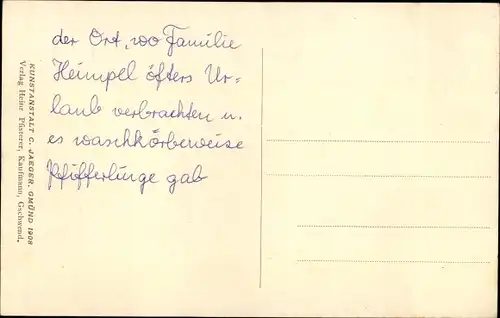 der Ort, wo Familie
Heimpel öfters Ur=
laub verbrachten u.
es waschkörbeweise
Pfifferlinge gab
KUNSTANSTALT C. JAEGER, GMÜND 1908
Verlag Heinr Pfisterer, Kaufmann, Gschwend.